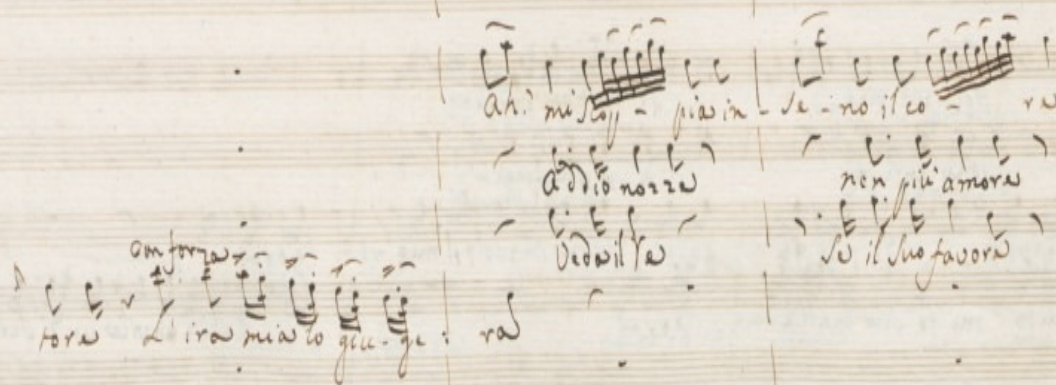 Ah! mi scop - pia in - se - no il co - re
Addio nozze non più amore
Veda il Re se il suo favore
con forza
tore L'ira mia lo giu - ge - rà